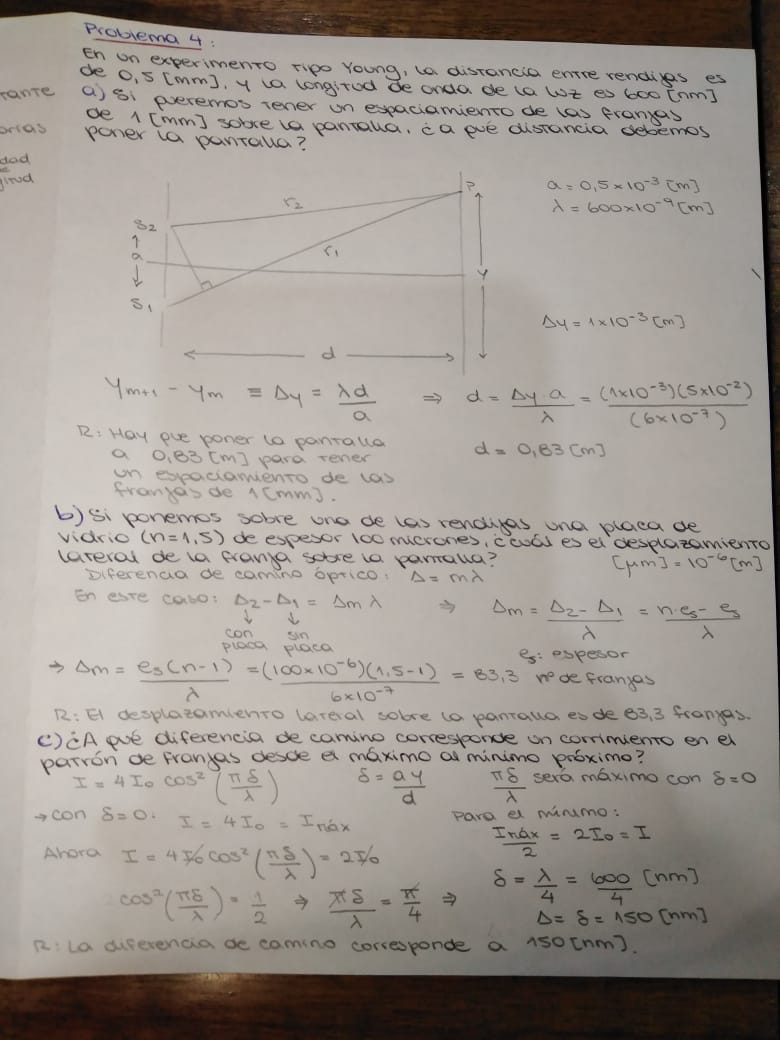 rante
orias
dad
e
gitud
Problema 4:
En un experimento tipo Young, la distancia entre rendijas es
de 0,5 [mm], y la longitud de onda de la luz es 600 [nm]
a) Si queremos tener un espaciamiento de las franjas
de 1 [mm] sobre la pantalla, ¿a qué distancia debemos
poner la pantalla?
a = 0,5×10⁻³ [m]
λ = 600×10⁻⁹ [m]
P
r₂
S₂
r₁
a
y
S₁
Δy = 1×10⁻³ [m]
d
Yₘ₊₁ - Yₘ ≡ Δy = λd/a ⇒ d = Δy·a/λ = (1×10⁻³)(5×10⁻²)/(6×10⁻⁷)
R: Hay que poner la pantalla
a 0,83 [m] para tener
un espaciamiento de las
franjas de 1 [mm].
d = 0,83 [m]
b) Si ponemos sobre una de las rendijas una placa de
vidrio (n=1,5) de espesor 100 micrones, ¿cuál es el desplazamiento
lateral de la franja sobre la pantalla?
[μm] = 10⁻⁶ [m]
Diferencia de camino óptico: Δ = mλ
En este caso: Δ₂ - Δ₁ = Δm λ ⇒ Δm = (Δ₂ - Δ₁)/λ = (n·es - es)/λ
con placa
sin placa
es: espesor
→ Δm = es(n-1)/λ = (100×10⁻⁶)(1,5-1)/6×10⁻⁷ = 83,3 nº de franjas
R: El desplazamiento lateral sobre la pantalla es de 83,3 franjas.
c) ¿A qué diferencia de camino corresponde un corrimiento en el
patrón de franjas desde el máximo al mínimo próximo?
I = 4I₀ cos² (πδ/λ) δ = ay/d πδ/λ será máximo con δ=0
→ con δ=0: I = 4I₀ = Imáx
Para el mínimo:
Imáx/2 = 2I₀ = I
Ahora I = 4I₀ cos² (πδ/λ) = 2I₀
δ = λ/4 = 600/4 [nm]
cos² (πδ/λ) = 1/2 ⇒ πδ/λ = π/4 ⇒
Δ = δ = 150 [nm]
R: La diferencia de camino corresponde a 150 [nm].